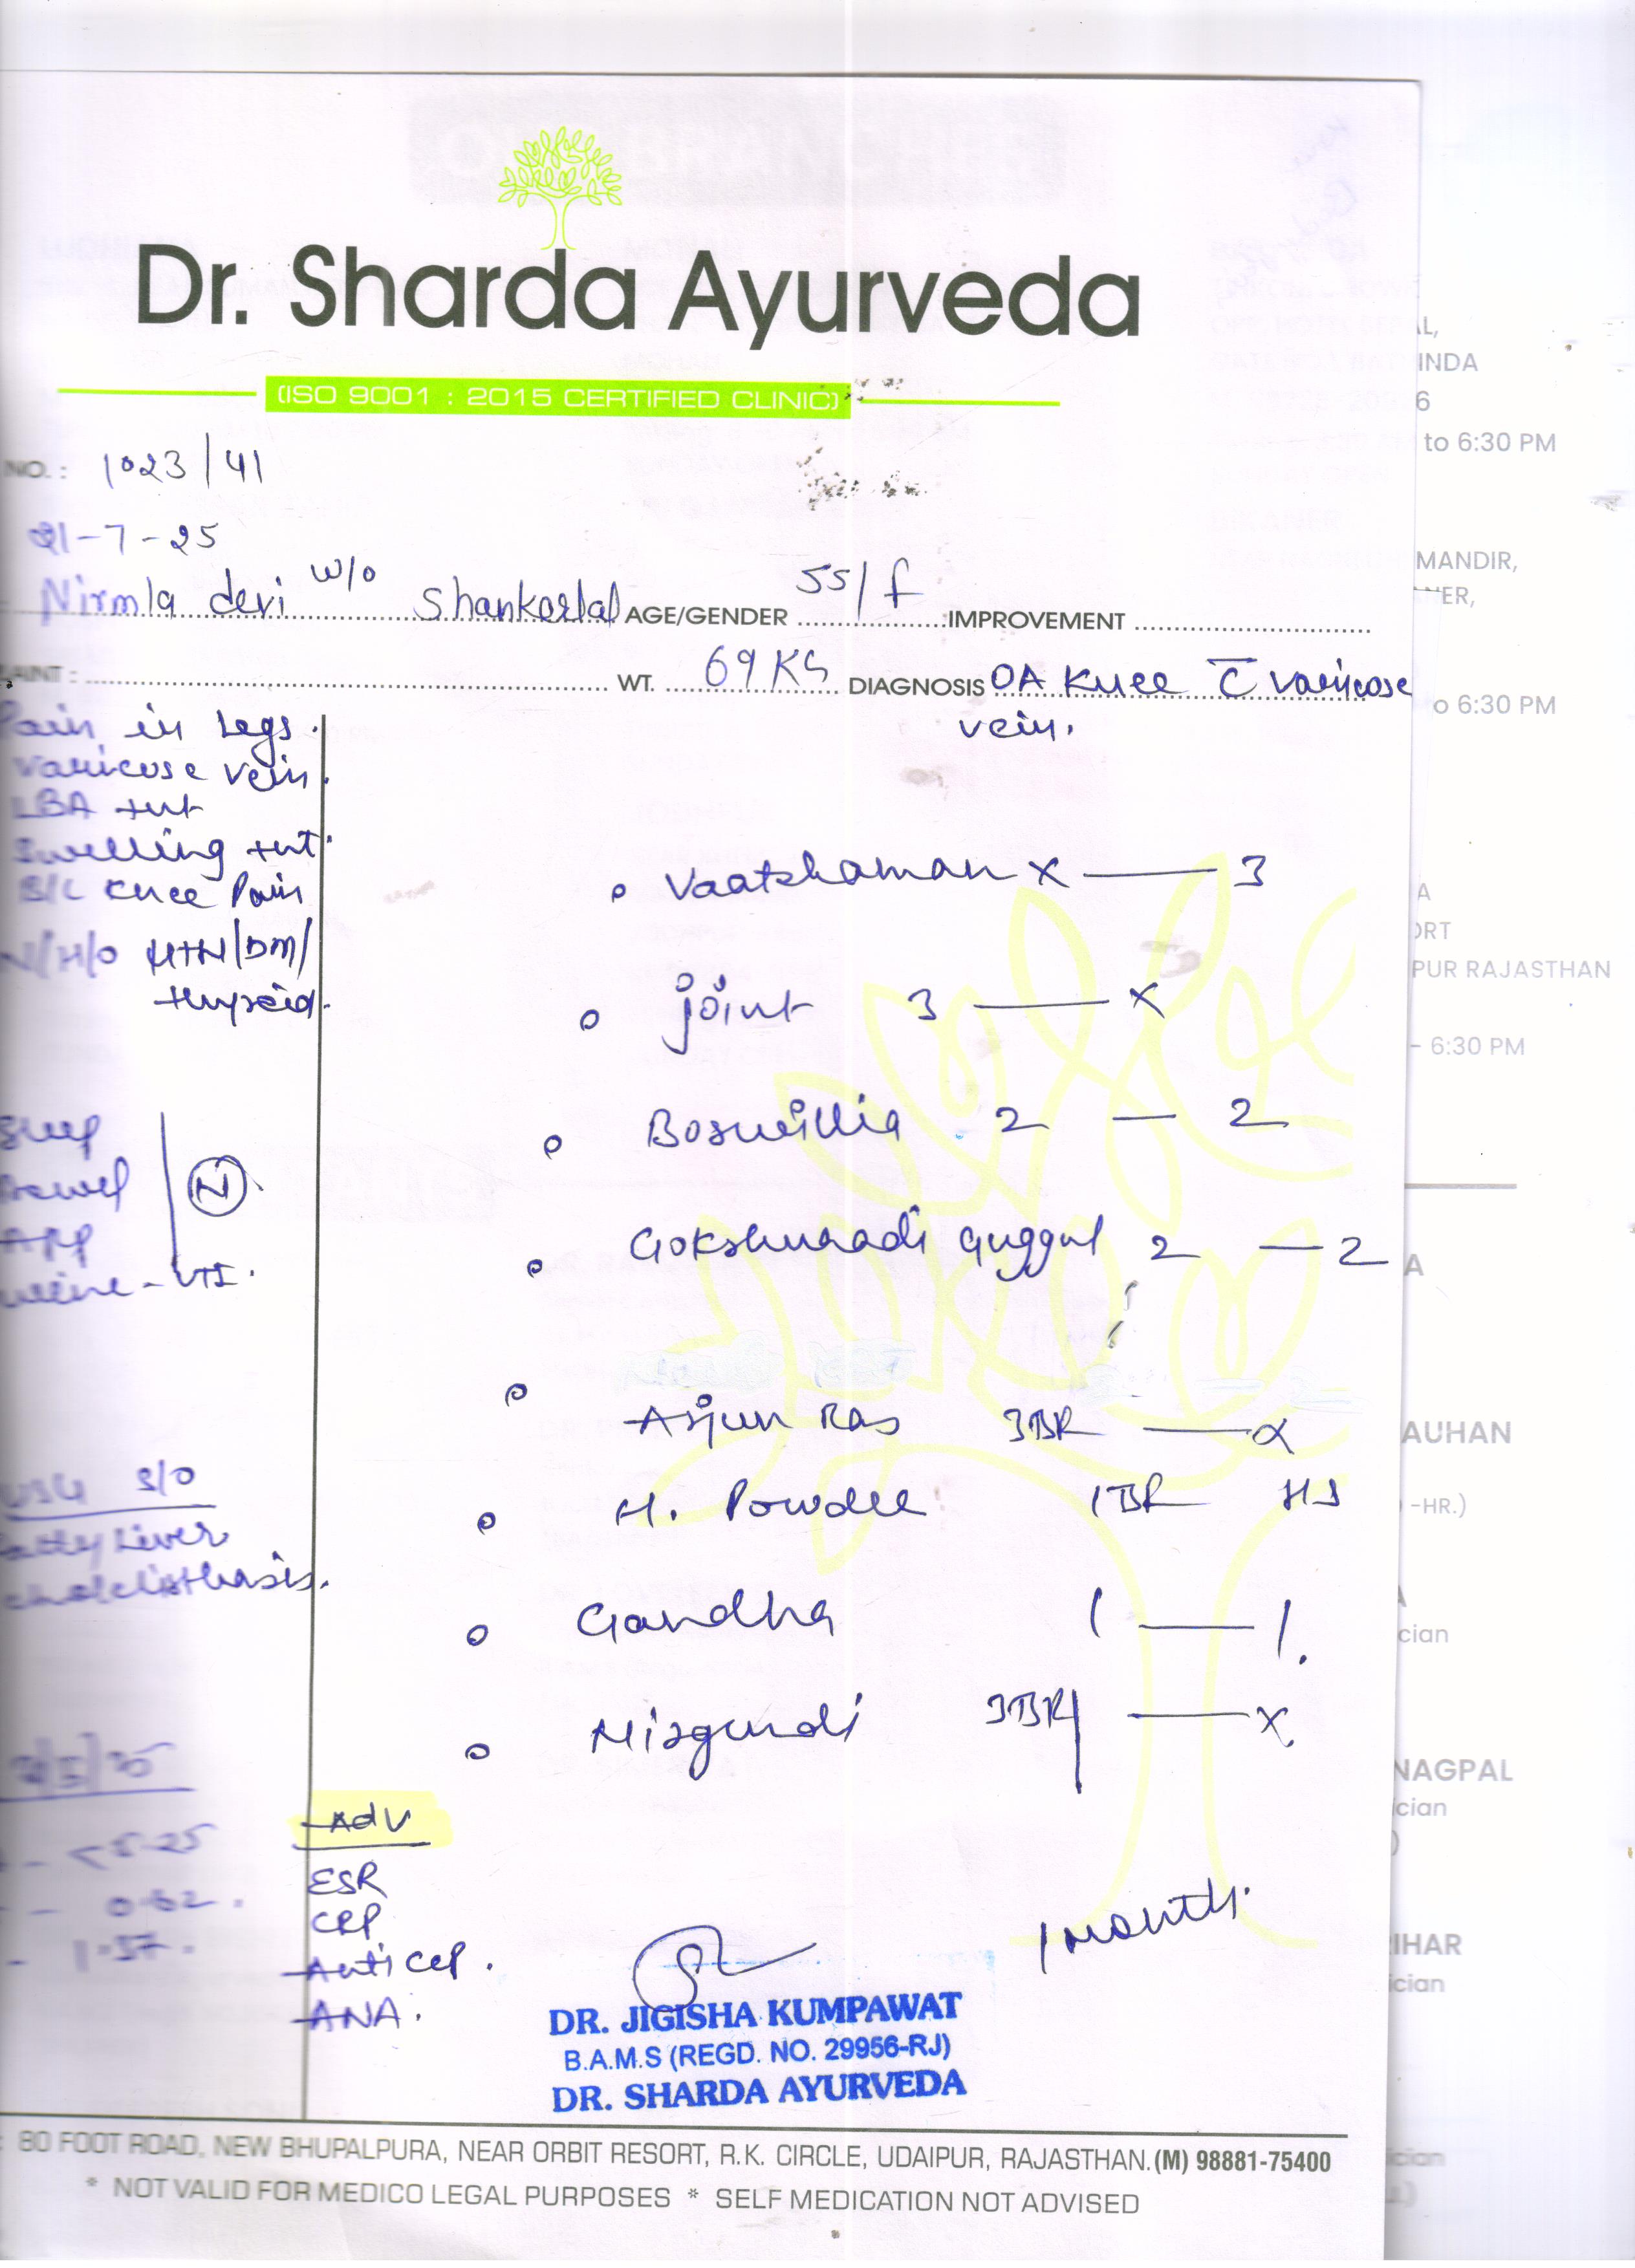 Dr. Sharda Ayurveda
(ISO 9001 : 2015 CERTIFIED CLINIC)
NO. : 1023/41
21-7-25
Nirmla devi w/o Shankarlal AGE/GENDER 55/f IMPROVEMENT
AINT : WT. 69 KG DIAGNOSIS OA Knee c̅ Varicose
vein.
Pain in Legs.
Varicose vein.
LBA +nt
Swelling +nt
B/L Knee Pain
N/H/O HTN/DM/
thyroid.
• Vaatshaman x — 3
• joint 3 — x
• Boswillia 2 — 2
Sleep
Bowel (N)
App
urine - UTI.
• Gokshuraadi Guggul 2 — 2
• Arjun Ras 3BR — x
USG S/O
Fatty Liver
• H. Powder 1BR HS
• Gandha 1 — 1.
• Nirgundi 3BR — x
Adv
ESR
CRP
Anti CCP.
ANA.
- < 5.25
- 0.62.
- 1.37.
1 month.
DR. JIGISHA KUMPAWAT
B.A.M.S (REGD. NO. 29956-RJ)
DR. SHARDA AYURVEDA
: 80 FOOT ROAD, NEW BHUPALPURA, NEAR ORBIT RESORT, R.K. CIRCLE, UDAIPUR, RAJASTHAN. (M) 98881-75400
* NOT VALID FOR MEDICO LEGAL PURPOSES * SELF MEDICATION NOT ADVISED
L,
INDA
6
to 6:30 PM
MANDIR,
ER,
o 6:30 PM
A
ORT
PUR RAJASTHAN
- 6:30 PM
A
AUHAN
-HR.)
cian
NAGPAL
cian
)
IHAR
ician
ician